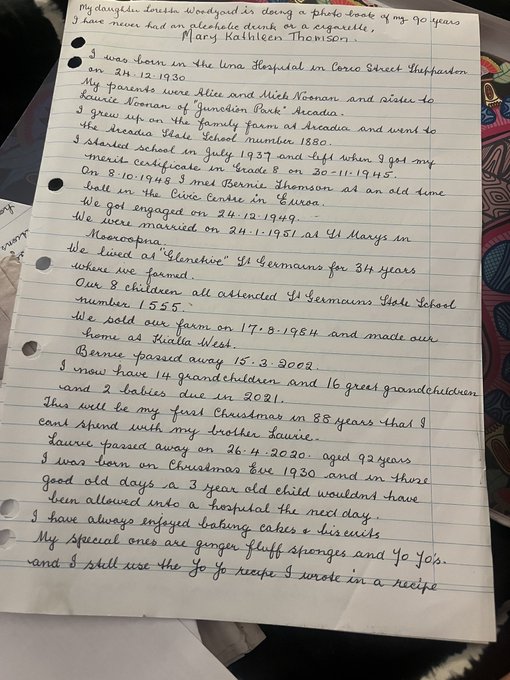 My daughter Loretta Woodyard is doing a photo book of my 90 years
I have never had an alcoholic drink or a cigarette,
Mary Kathleen Thomson.
I was born in the Una Hospital in Corio Street Shepparton
on 24.12.1930
My parents were Alice and Mick Noonan and sister to
Laurie Noonan of "Junction Park" Arcadia.
I grew up on the family farm at Arcadia and went to
the Arcadia State School number 1880.
I started school in July 1937 and left when I got my
merit certificate in Grade 8 on 30-11-1945.
On 8.10.1948 I met Bernie Thomson at an old time
ball in the Civic Centre in Euroa.
We got engaged on 24.12.1949.
We were married on 24.1.1951 at St Marys in
Mooroopna.
We lived at "Glenetive" St Germains for 34 years
where we farmed.
Our 8 children all attended St Germains State School
number 1555.
We sold our farm on 17.8.1984 and made our
home at Kialla West.
Bernie passed away 15.3.2002.
I now have 14 grandchildren and 16 great grandchildren
and 2 babies due in 2021.
This will be my first Christmas in 88 years that I
cant spend with my brother Laurie.
Laurie passed away on 26.4.2020. aged 92 years
I was born on Christmas Eve 1930 and in those
good old days a 3 year old child wouldnt have
been allowed into a hospital the next day.
I have always enjoyed baking cakes & biscuits
My special ones are ginger fluff sponges and Yo Yo's.
and I still use the Yo Yo recipe I wrote in a recipe